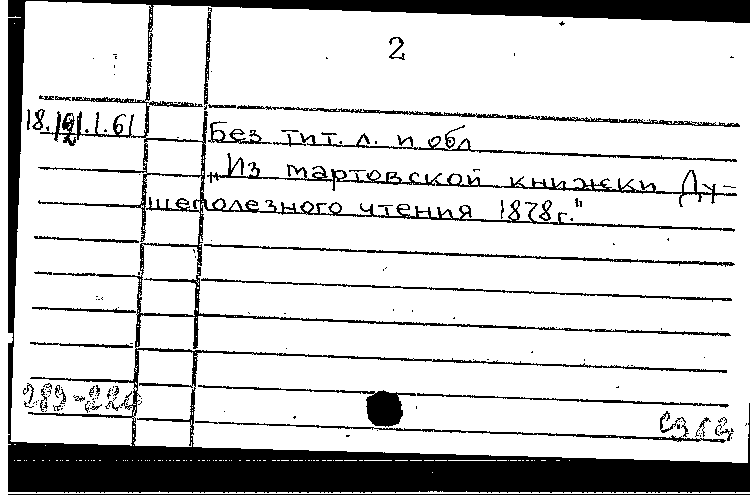 2
Без тит. л. и обл
„Из мартовской книжки Ду-
шеполезного чтения 1878г."